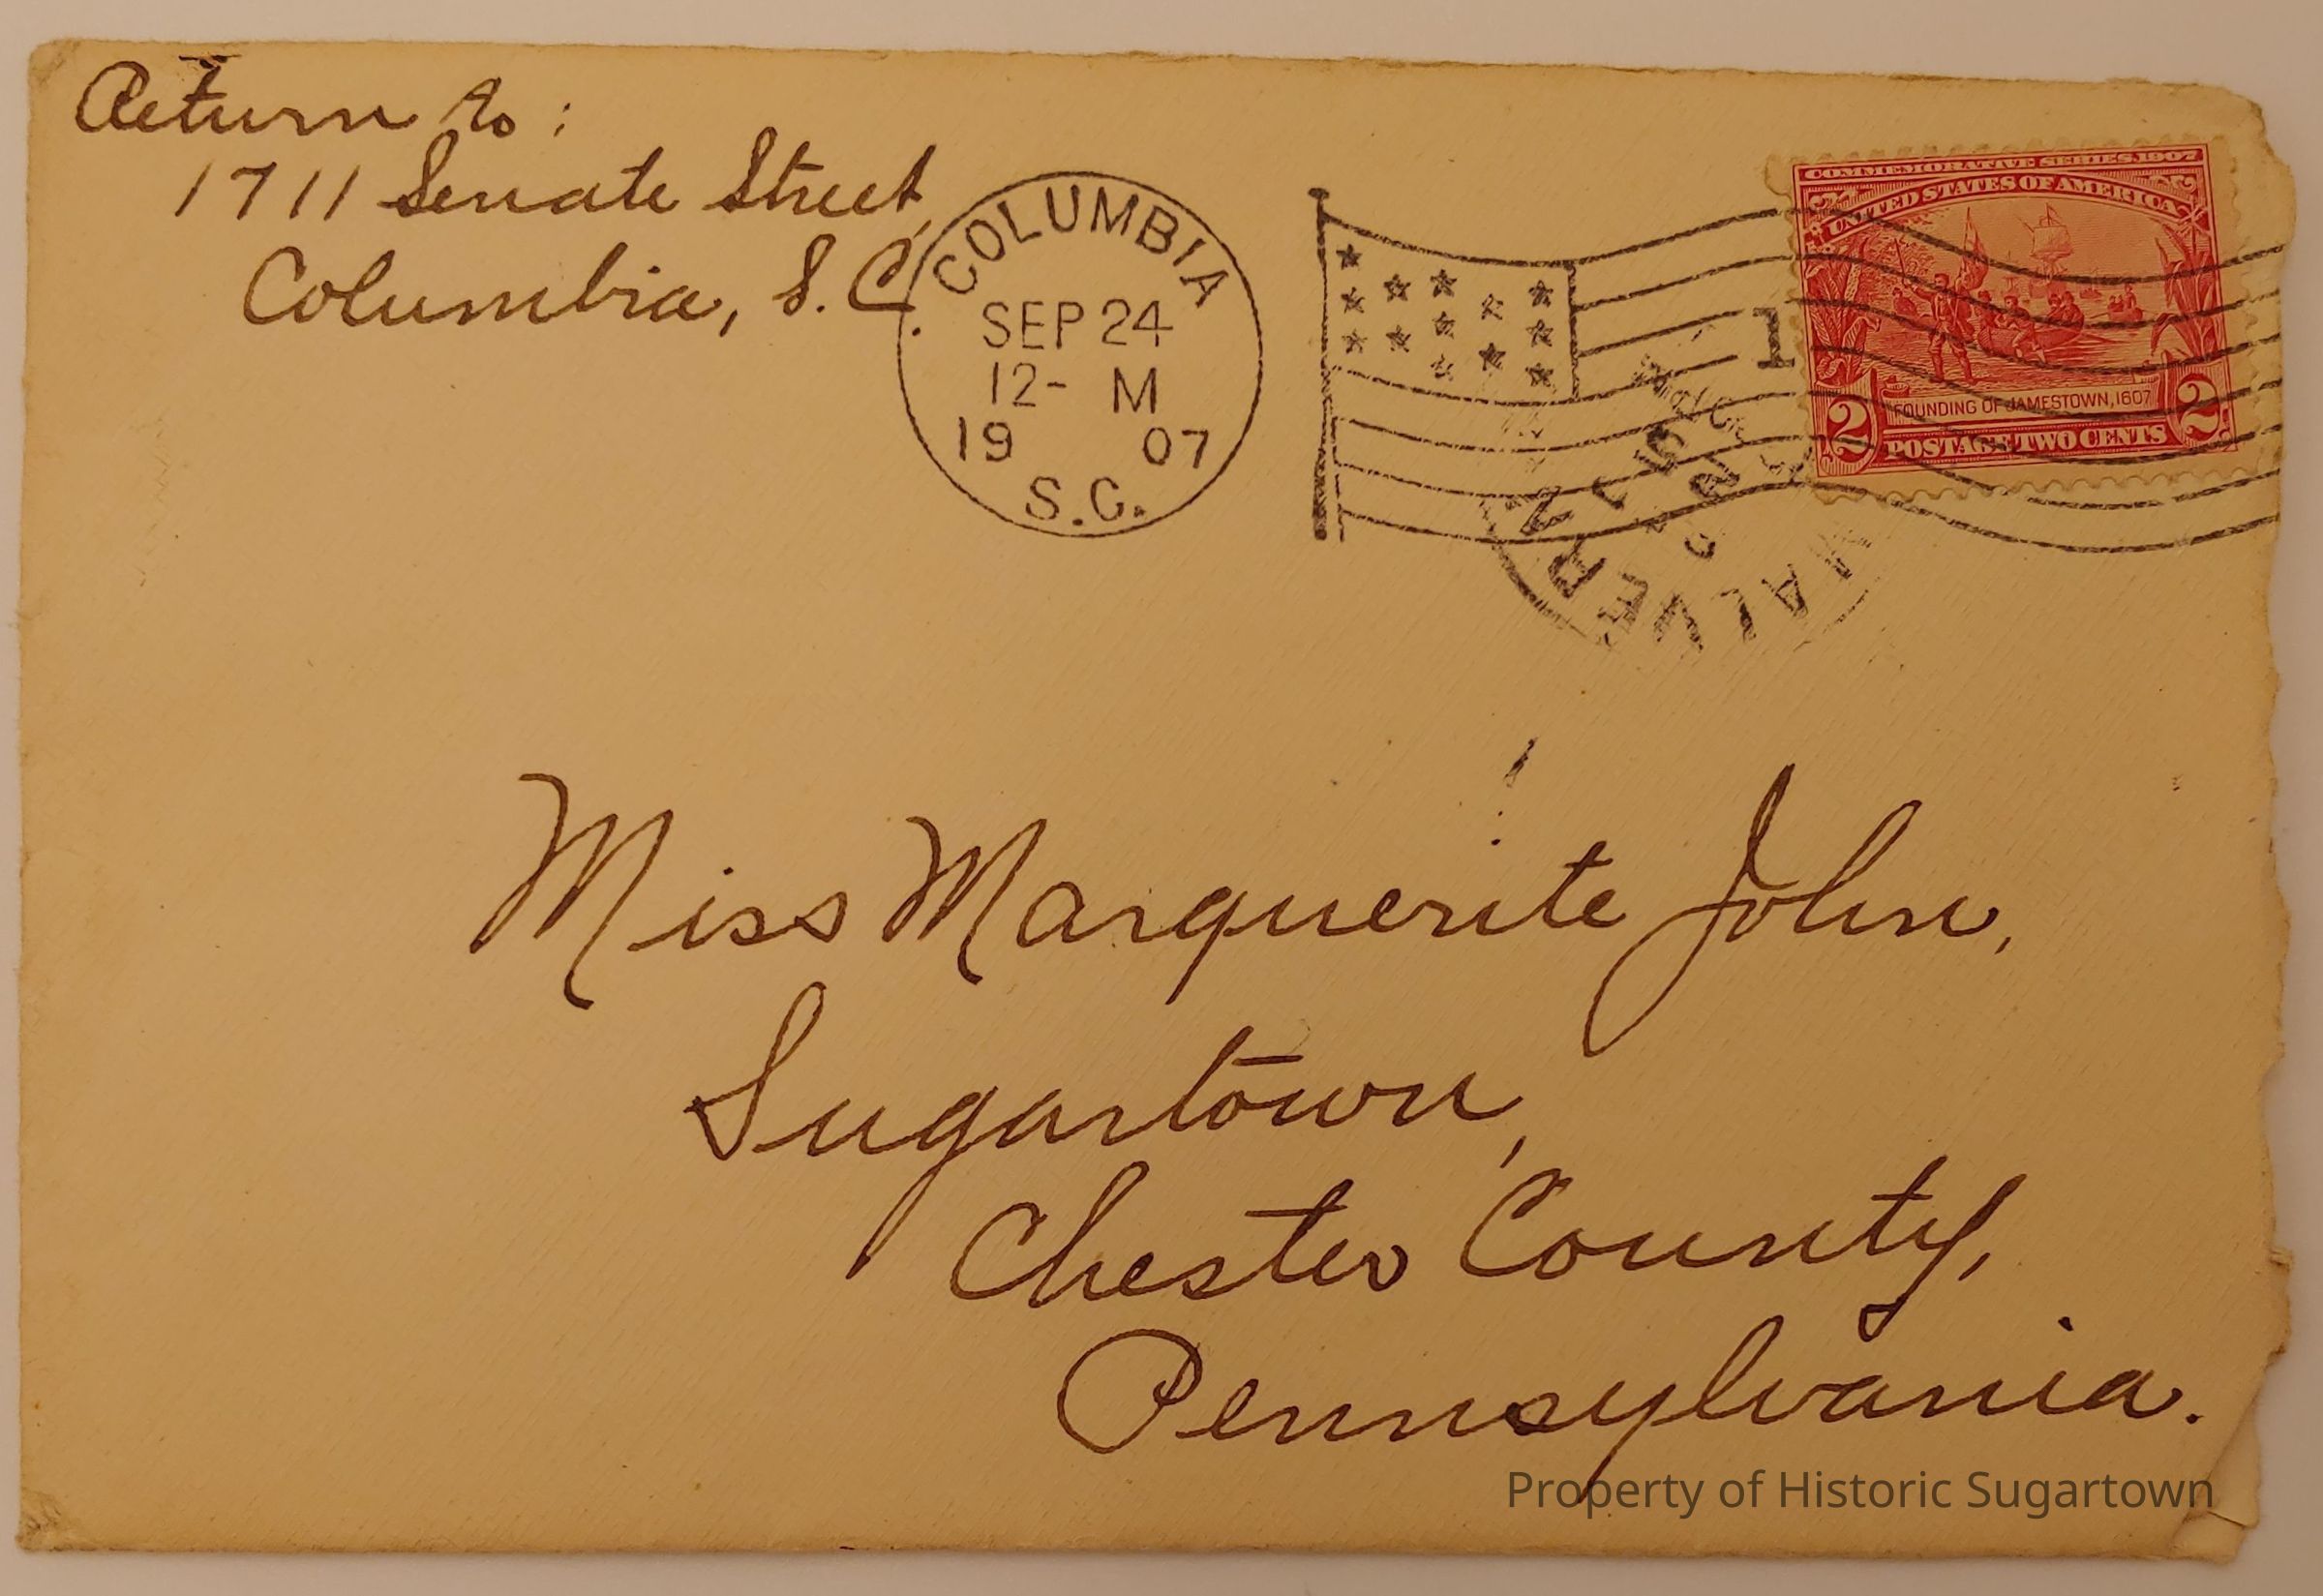 Return to:
1711 Senate Street,
Columbia, S.C.
COLUMBIA
SEP 24
12- M
19 07
S.C.
1
COMMEMORATIVE SERIES 1907
UNITED STATES OF AMERICA
FOUNDING OF JAMESTOWN, 1607
2 POSTAGE TWO CENTS 2
Miss Marguerite John,
Sugartown,
Chester County,
Pennsylvania.
Property of Historic Sugartown